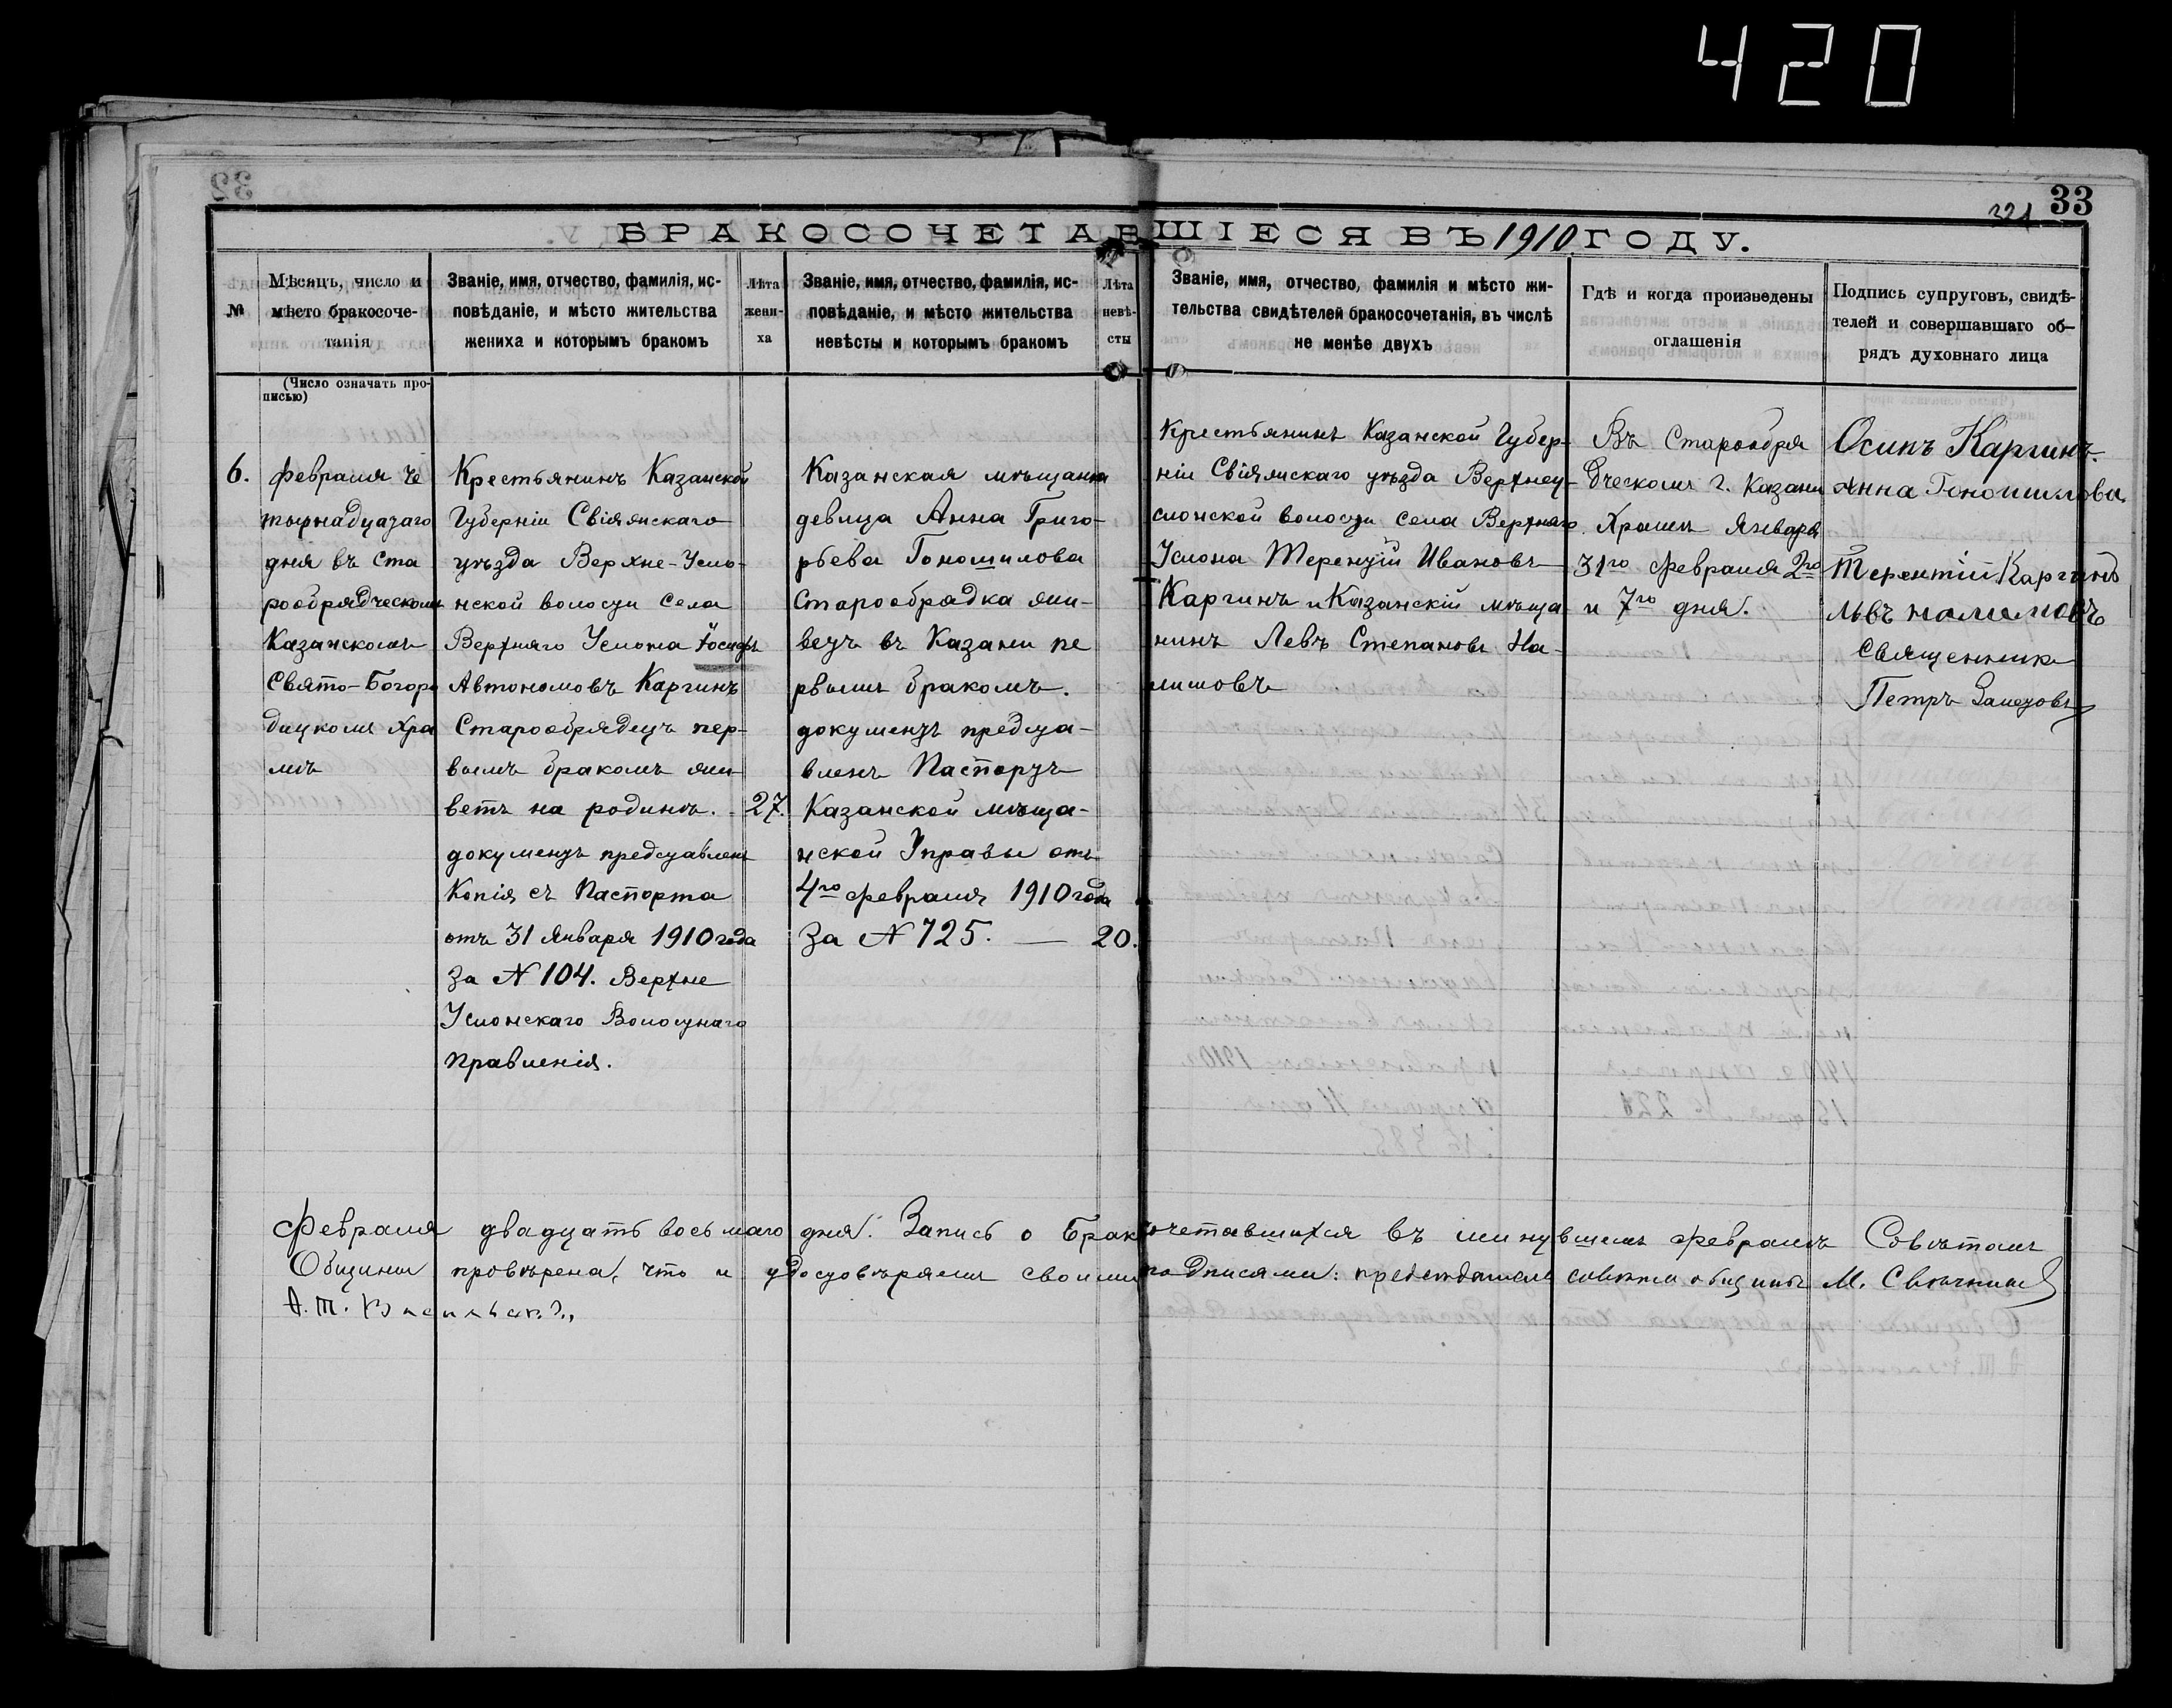 420
32
33
321
БРАКОСОЧЕТАВШІЕСЯ ВЪ 1910 ГОДУ.
№
Мѣсяцъ, число и
мѣсто бракосоче-
танія
(Число означать про-
писью)
Званіе, имя, отчество, фамилія, ис-
повѣданіе, и мѣсто жительства
жениха и которымъ бракомъ
Лѣта
жени-
ха
Званіе, имя, отчество, фамилія, ис-
повѣданіе, и мѣсто жительства
невѣсты и которымъ бракомъ
Лѣта
невѣ-
сты
Званіе, имя, отчество, фамилія и мѣсто жи-
тельства свидѣтелей бракосочетанія, въ числѣ
не менѣе двухъ
Гдѣ и когда произведены
оглашенія
Подпись супруговъ, свидѣ-
телей и совершавшаго об-
рядъ духовнаго лица
6.
Февраля че
тырнадцатаго
дня въ Ста
рообрядческомъ
Казанскомъ
Свято-Богоро
дицкомъ Хра
мѣ
Крестьянинъ Казанской
Губерніи Свіяжскаго
уѣзда Верхне-Усло-
нской волости Села
Верхняго Услона Іосифъ
Автономовъ Каргинъ
Старообрядецъ пер-
вымъ бракомъ жи-
ветъ на родинѣ.
документъ представленъ
Копія съ Паспорта
отъ 31 Января 1910 года
За № 104. Верхне
Услонскаго Волостнаго
Правленія.
27.
Казанская мѣщанка
девица Анна Григо-
рьева Гоношилова
Старообрядка жи-
ветъ въ Казани пе
рвымъ бракомъ.
документъ предста-
вленъ Паспортъ
Казанской мѣща-
нской Управы отъ
4го Февраля 1910 года
За № 725. —
20.
Крестьянинъ Казанской Губер-
ніи Свіяжскаго уѣзда Верхнеу-
слонской волости села Верхняго
Услона Терентій Ивановъ
Каргинъ и Казанскій мѣща-
нинъ Левъ Степановъ На-
лимовъ
Въ Старообря
дческомъ г. Казани
Храмѣ Января
31го Февраля 2го
и 7го дня.
Осипъ Каргинъ.
Анна Гоношилова
Терентій Каргинъ
Лѣвъ налимовъ
Священникъ
Петръ Залетовъ
Февраля двадцать восьмаго дня. Запись о Бракосочетавшихся въ минувшемъ Февралѣ Совѣтомъ
Общины провѣрена, что и удостовѣряемъ своими подписями: председатель совета общины М. Свечник
А. Т. Васильев